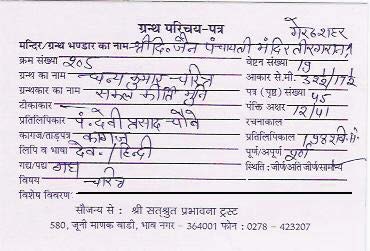 ग्रन्थ परिचय-पत्र
मन्दिर/ग्रन्थ भण्डार का नाम- श्री दि. जैन पंचायती मंदिर
क्रम संख्या २०५ वेष्टन संख्या 19
ग्रन्थ का नाम- धन्य कुमार-चरित्र आकार से.मी.
ग्रन्थकार का नाम सकल कीर्ति मुनि पत्र (पृष्ठ) संख्या ५५
टीकाकार पंक्ति अक्षर 12/41
प्रतिलिपिकार पं. देवी प्रसाद-चौबे रचनाकाल
कागज/ताड़पत्र कागज प्रतिलिपिकाल
लिपि व भाषा देव./हिन्दी पूर्ण/अपूर्ण पूर्ण
गद्य/पद्य गद्य स्थिति : जीर्ण/अति जीर्ण/सामान्य
विषय चरित्र
विशेष विवरण:
सौजन्य से : श्री सतश्रुत प्रभावना ट्रस्ट
580, जूनी माणक वाडी, भाव नगर - 364001 फोन : 0278 - 423207